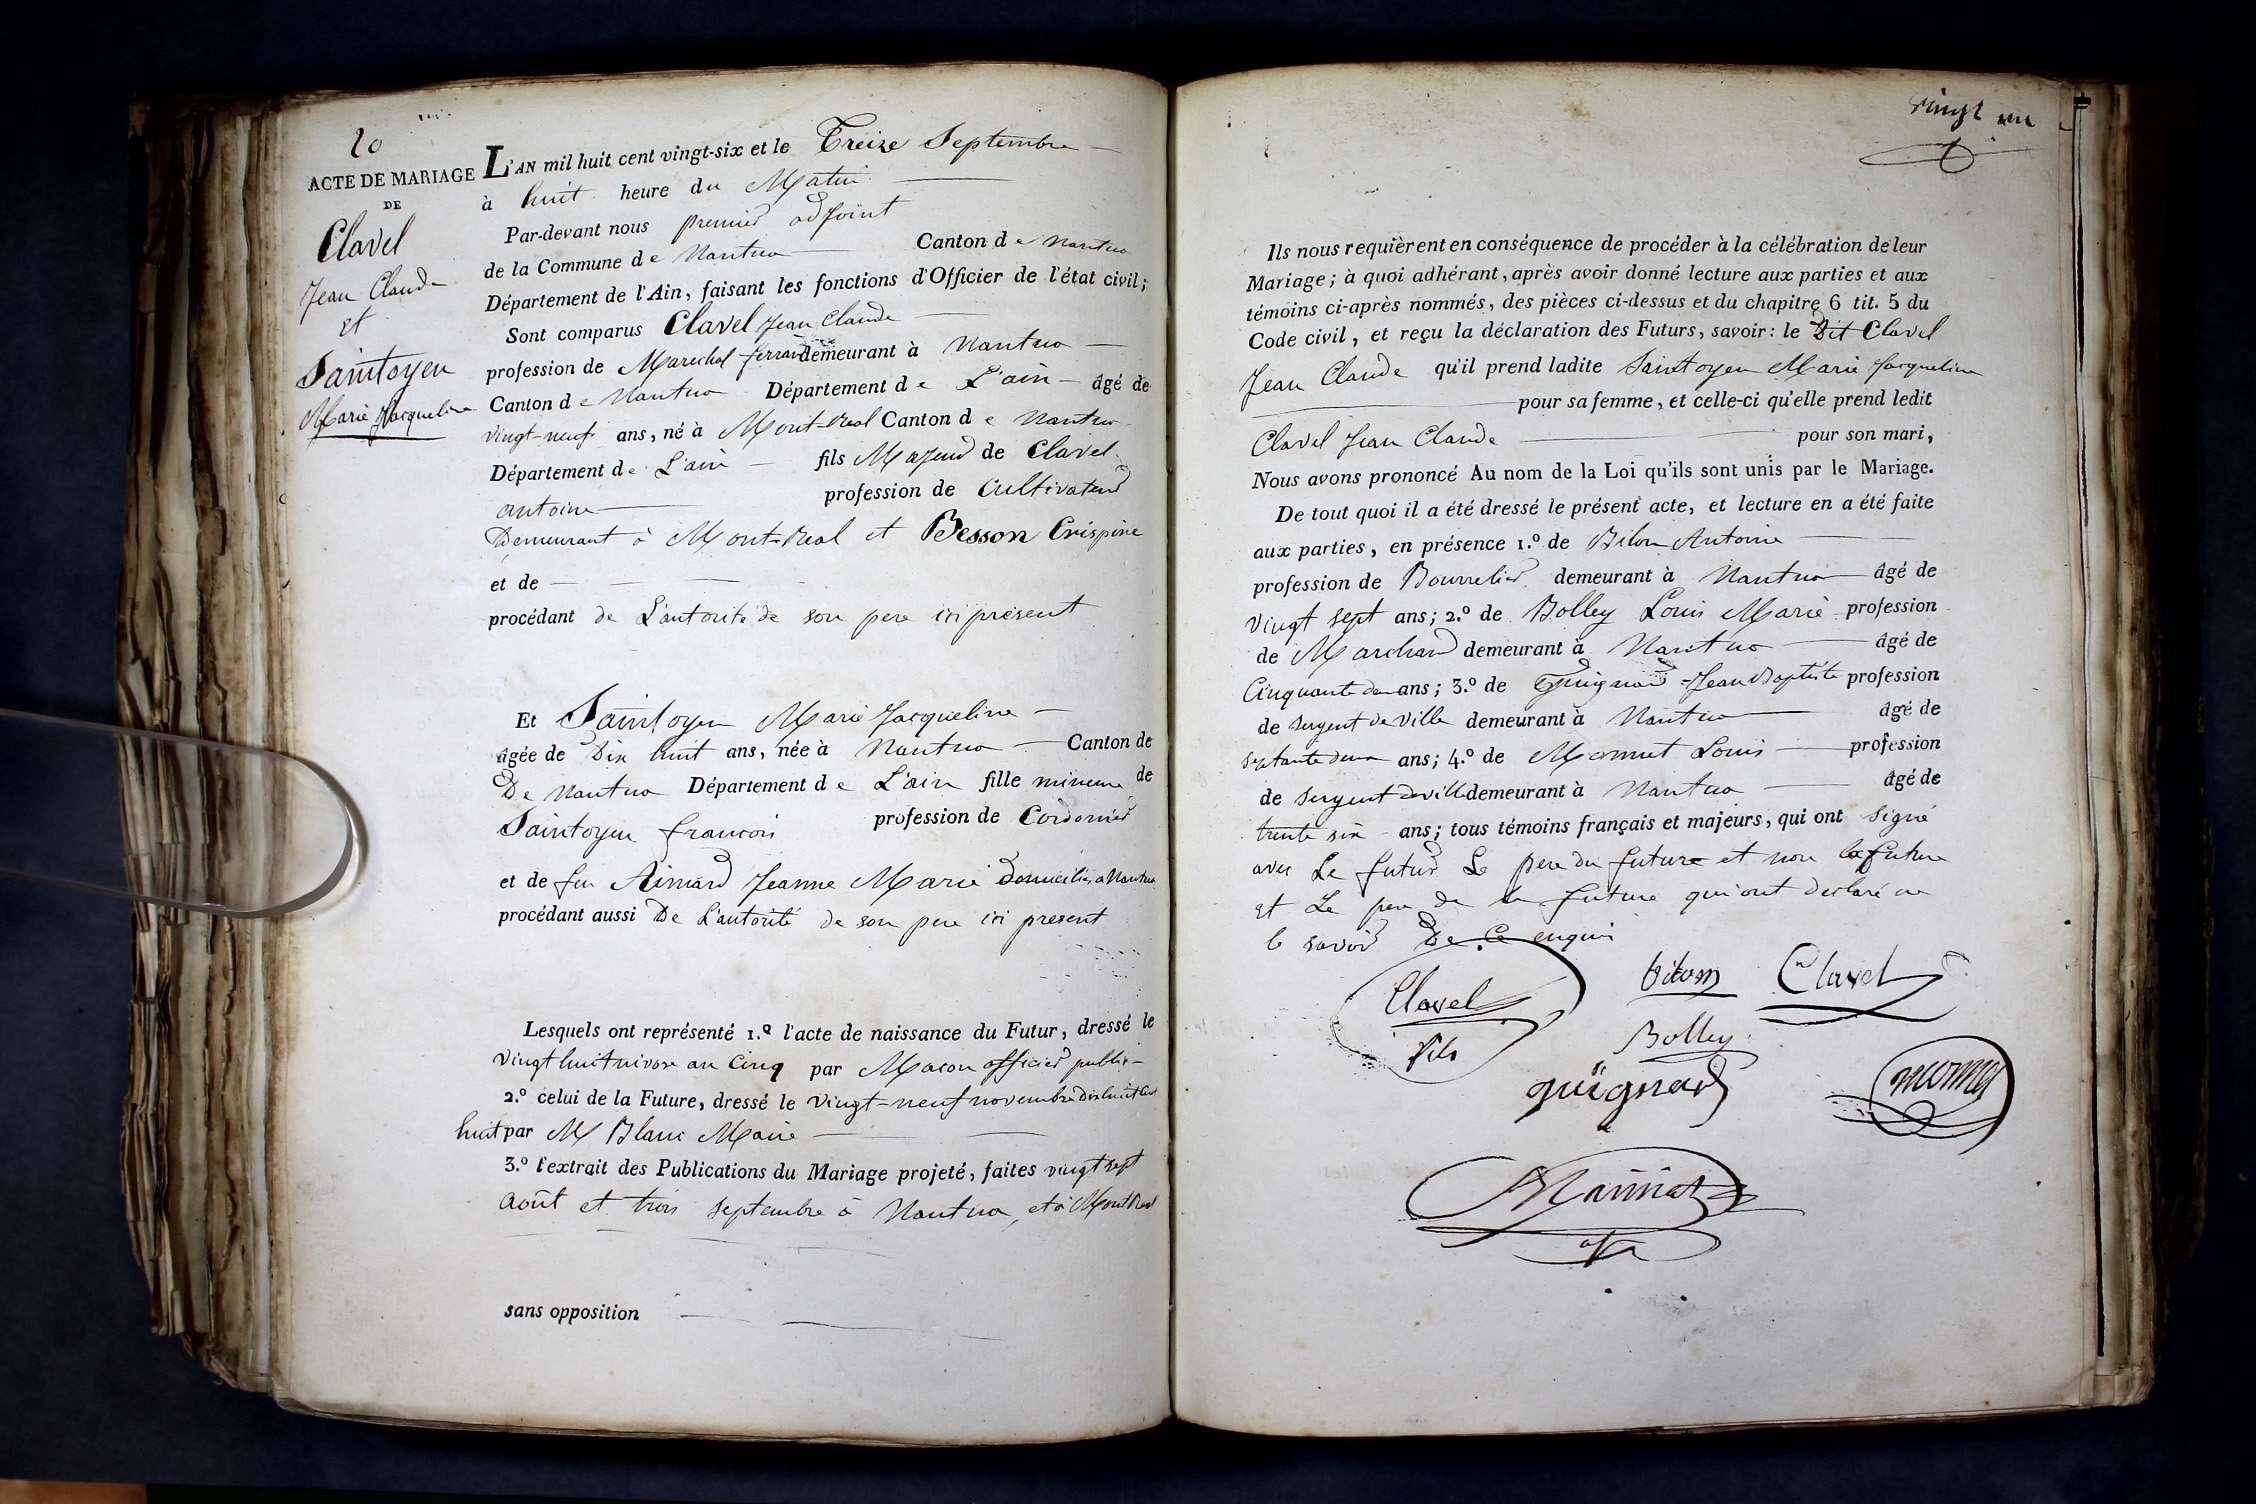 20
ACTE DE MARIAGE
DE
Clavel
Jean Claude
et
Saintoyen
Marie Jacqueline
L'AN mil huit cent vingt-six et le Treize Septembre
à huit heure du Matin
Par-devant nous premier adjoint
de la Commune de Nantua Canton de Nantua
Département de l'Ain, faisant les fonctions d'Officier de l'état civil;
Sont comparus Clavel Jean Claude
profession de Marechal ferrand demeurant à Nantua
Canton de Nantua Département de L'ain âgé de
vingt-neuf ans, né à Mont-Real Canton de Nantua
Département de L'ain fils Majeur de Clavel
antoine profession de Cultivateur
Demeurant à Mont-Real et Besson Crispine
et de
procédant de L'autorité de son pere ici présent
Et Saintoyen Marie Jacqueline
âgée de Dix huit ans, née à Nantua Canton de
De Nantua Département de L'ain fille mineure de
Saintoyen francois profession de Cordonnier
et de feu Aimard Jeanne Marie domiciliés a Nantua
procédant aussi De L'autorité de son pere ici present
Lesquels ont représenté 1.º l'acte de naissance du Futur, dressé le
vingt huit nivose an Cinq par Macon officier public
2.º celui de la Future, dressé le vingt-neuf novembre dix huit cent
huit par M Blanc Maire
3.º l'extrait des Publications du Mariage projeté, faites vingt sept
Août et trois septembre à Nantua, et à Mont Real
sans opposition
vingt un
Ils nous requièrent en conséquence de procéder à la célébration de leur
Mariage; à quoi adhérant, après avoir donné lecture aux parties et aux
témoins ci-après nommés, des pièces ci-dessus et du chapitre 6 tit. 5 du
Code civil, et reçu la déclaration des Futurs, savoir: le Dit Clavel
Jean Claude qu'il prend ladite Saintoyen Marie Jacqueline
pour sa femme, et celle-ci qu'elle prend ledit
Clavel Jean Claude pour son mari,
Nous avons prononcé Au nom de la Loi qu'ils sont unis par le Mariage.
De tout quoi il a été dressé le présent acte, et lecture en a été faite
aux parties, en présence 1.º de Bilon Antoine
profession de Bourrelier demeurant à Nantua âgé de
vingt sept ans; 2.º de Bolley Louis Marie profession
de Marchand demeurant à Nantua âgé de
Cinquante deux ans; 3.º de Guignard Jean Baptiste profession
de sergent de ville demeurant à Nantua âgé de
septante deux ans; 4.º de Mermet Louis profession
de sergent de ville demeurant à Nantua âgé de
trente six ans; tous témoins français et majeurs, qui ont signé
avec Le futur Le pere du future et non la future
et Le pere de la future qui ont déclaré ne
le savoir De Ce enquis
Clavel
fils
Clavel
Bolley
guignard